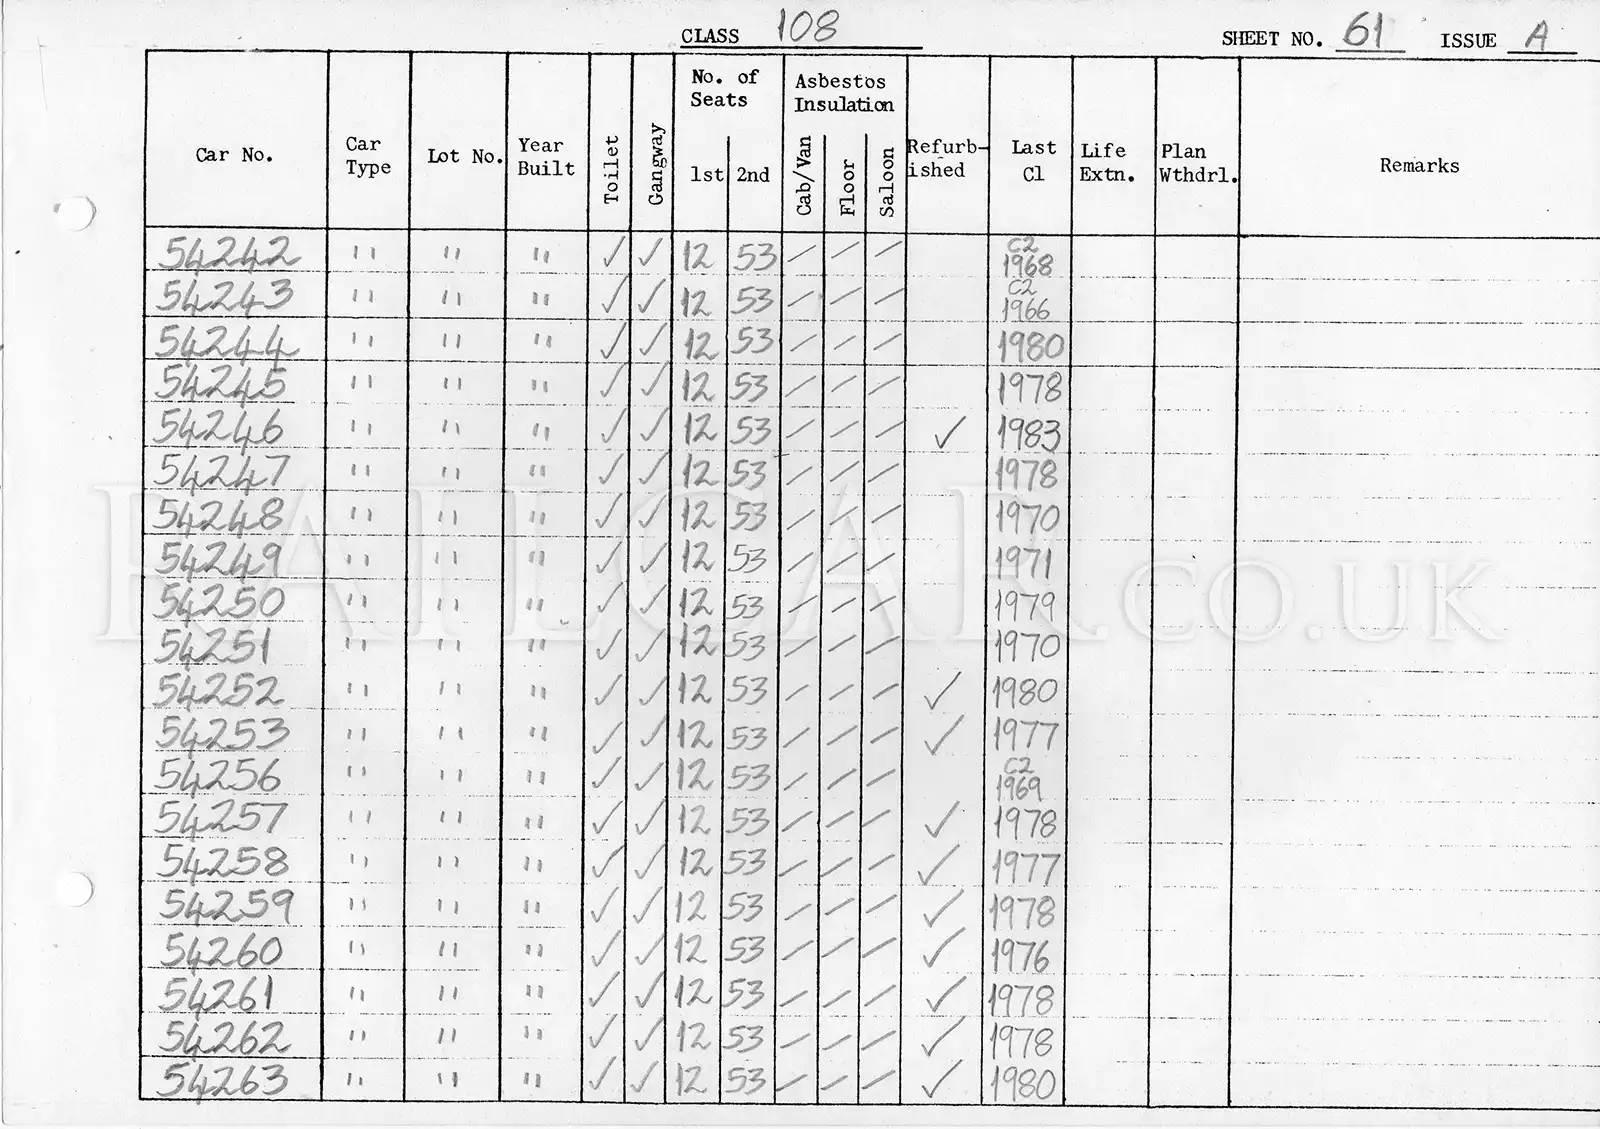 CLASS 108 SHEET NO. 61 ISSUE A
Car No. Car Type Lot No. Year Built Toilet Gangway No. of Seats 1st 2nd Asbestos Insulation Cab/Van Floor Saloon Refurb-ished Last Cl Life Extn. Plan Wthdrl. Remarks
54242 " " " ✓ ✓ 12 53 / / / C2 1968
54243 " " " ✓ ✓ 12 53 / / / C2 1966
54244 " " " ✓ ✓ 12 53 / / / 1980
54245 " " " ✓ ✓ 12 53 / / / 1978
54246 " " " ✓ ✓ 12 53 / / / ✓ 1983
54247 " " " ✓ ✓ 12 53 / / / 1978
54248 " " " ✓ ✓ 12 53 / / / 1970
54249 " " " ✓ ✓ 12 53 / / / 1971
54250 " " " ✓ ✓ 12 53 / / / 1979
54251 " " " ✓ ✓ 12 53 / / / 1970
54252 " " " ✓ ✓ 12 53 / / / ✓ 1980
54253 " " " ✓ ✓ 12 53 / / / ✓ 1977
54256 " " " ✓ ✓ 12 53 / / / C2 1969
54257 " " " ✓ ✓ 12 53 / / / ✓ 1978
54258 " " " ✓ ✓ 12 53 / / / ✓ 1977
54259 " " " ✓ ✓ 12 53 / / / ✓ 1978
54260 " " " ✓ ✓ 12 53 / / / ✓ 1976
54261 " " " ✓ ✓ 12 53 / / / ✓ 1978
54262 " " " ✓ ✓ 12 53 / / / ✓ 1978
54263 " " " ✓ ✓ 12 53 / / / ✓ 1980
RAILCAR.CO.UK